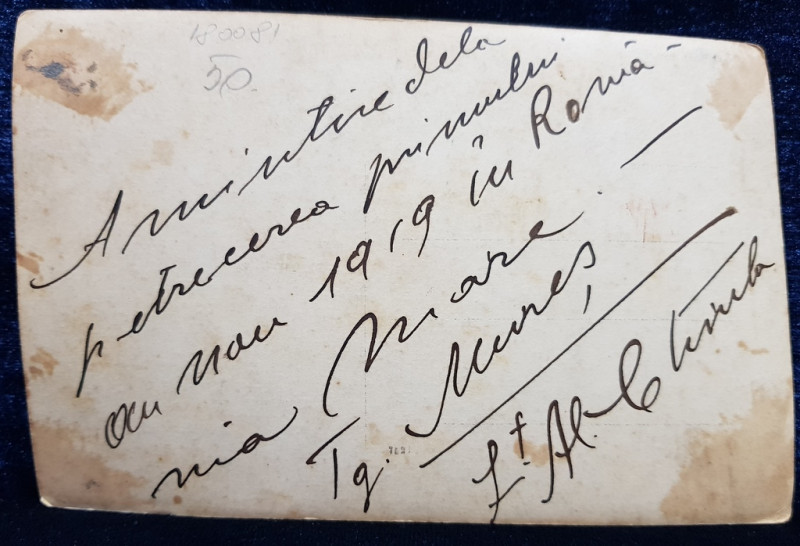 180081
50.
Amintire dela
petrecerea primului
an nou 1919 în Româ-
nia Mare. —
Tg. Mureș
Lt. Al.